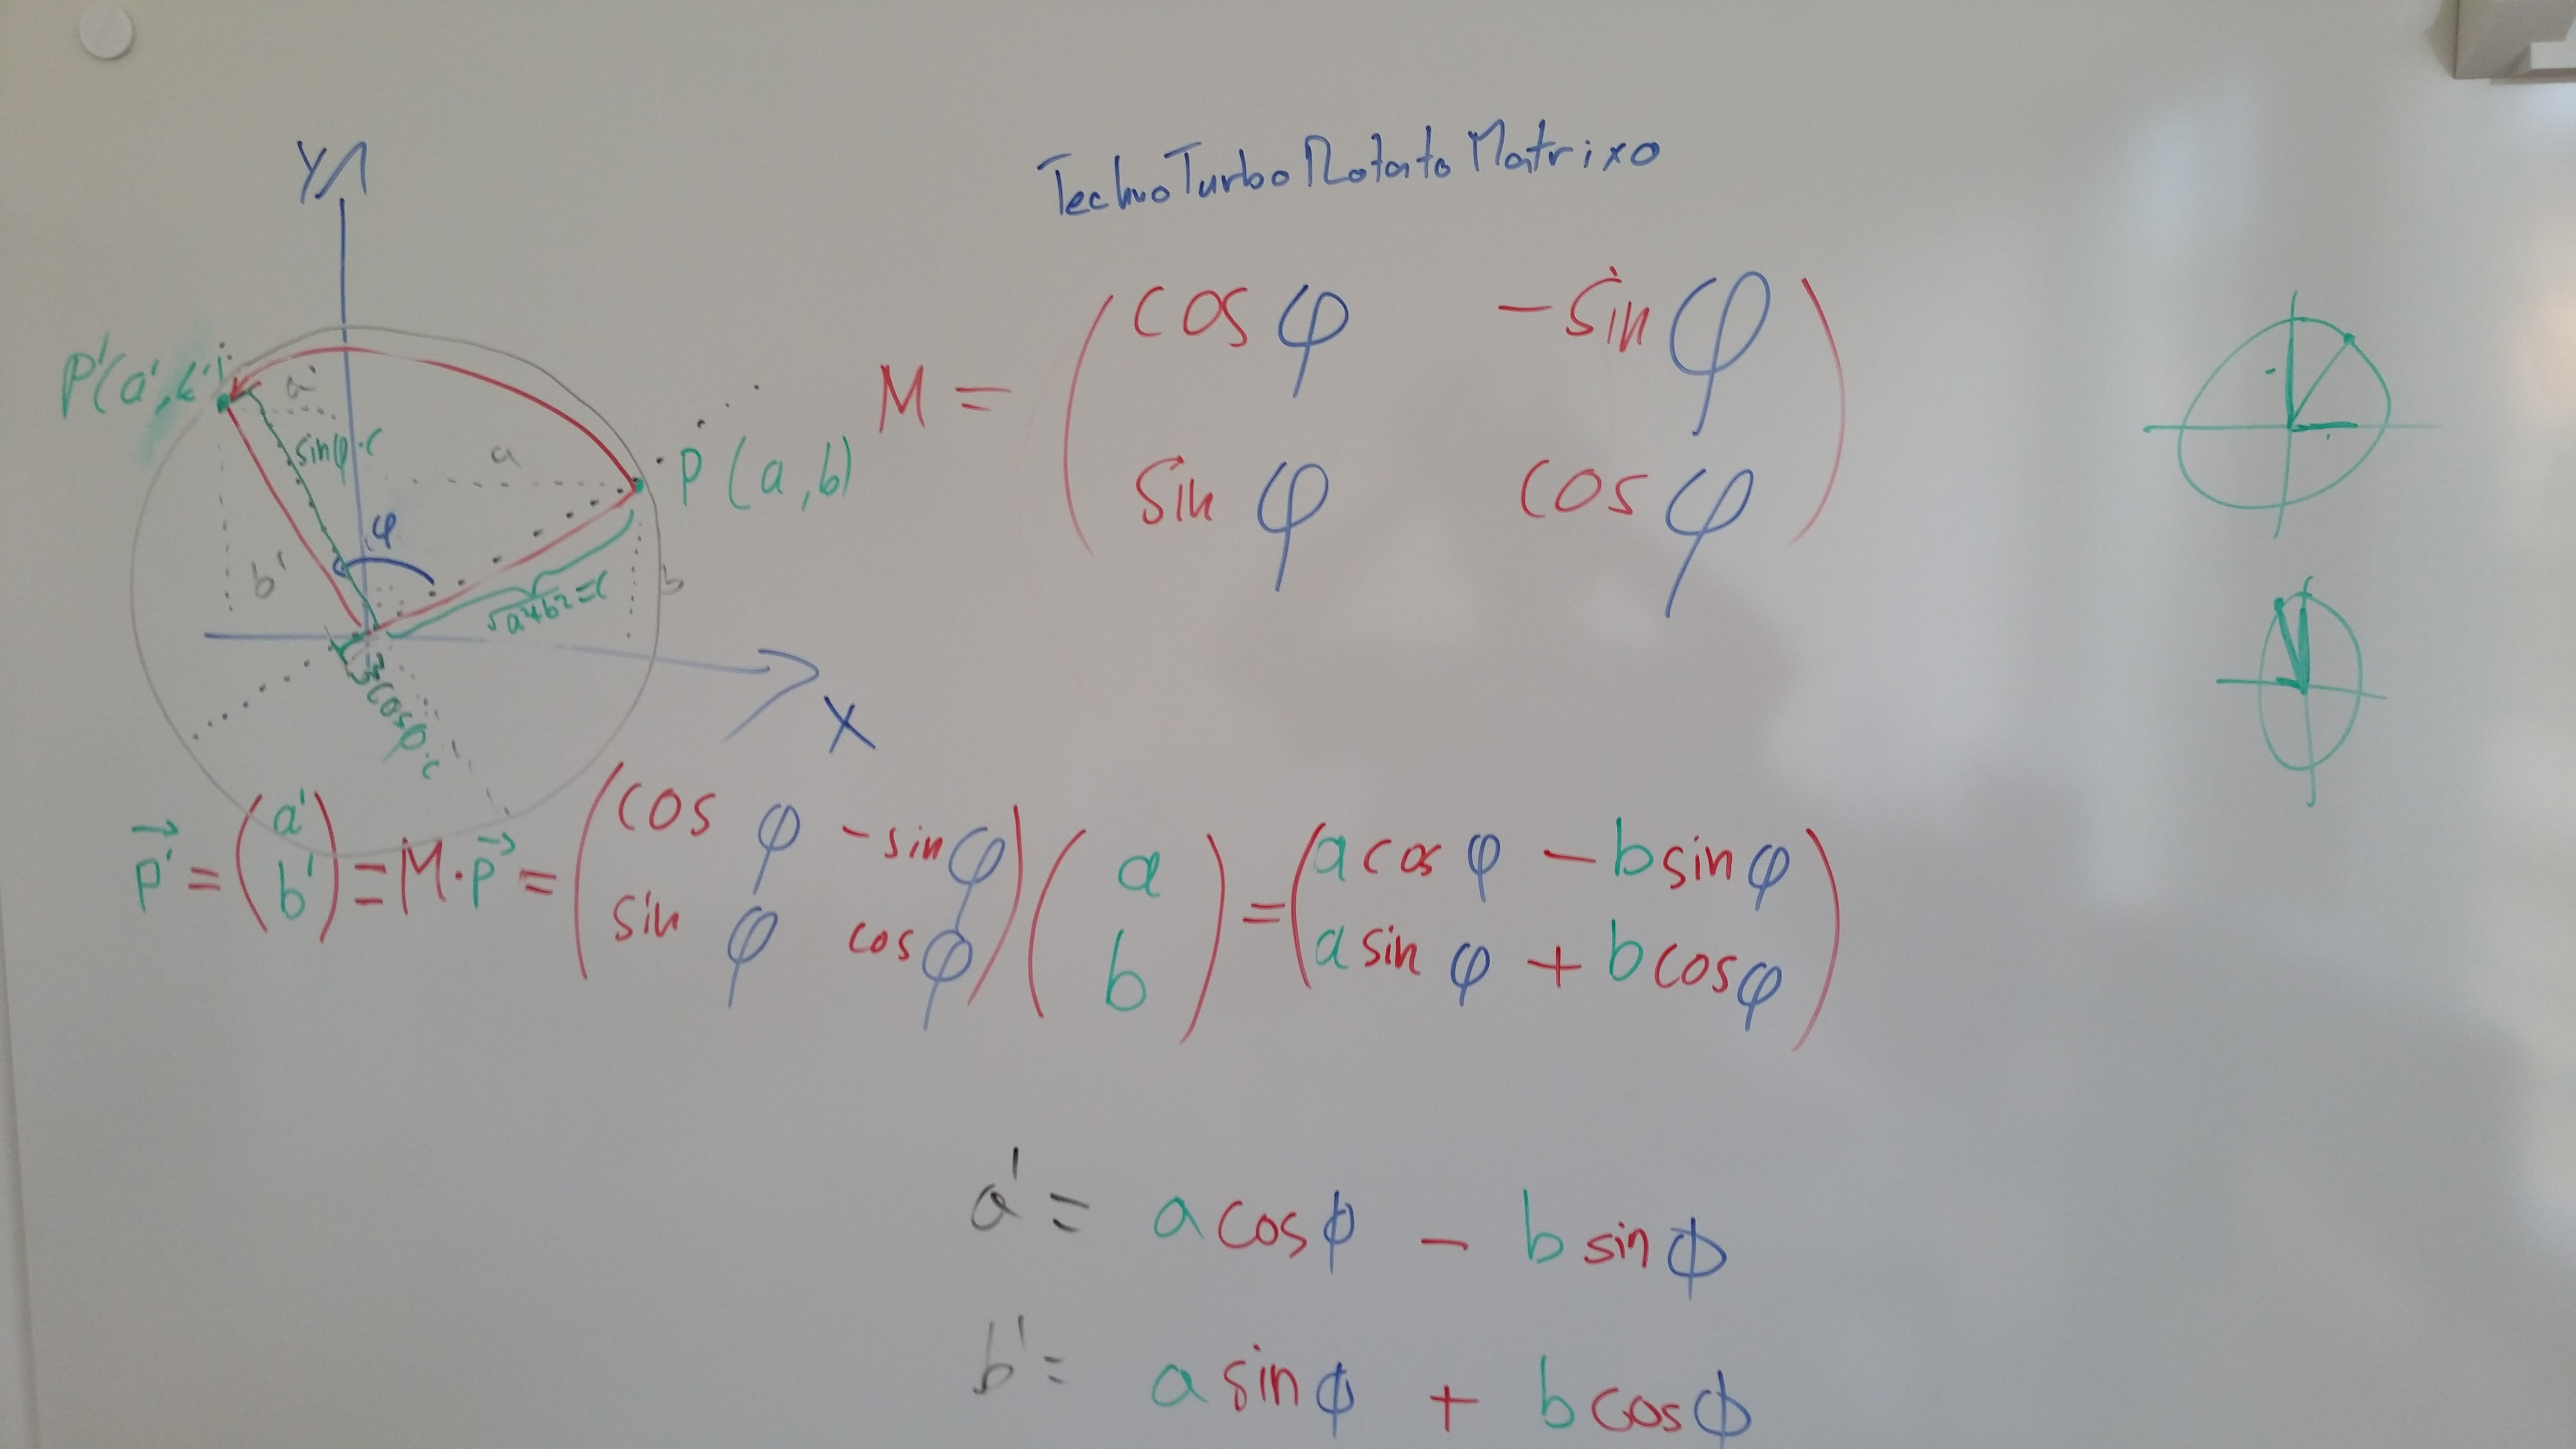 TechnoTurboRotatoMatrixo
Y
P'(a', b')
a'
sinφ·c
a
P (a,b)
φ
b'
b
√a²+b² = c
cosφ·c
X
M = ( cos φ -sin φ
sin φ cos φ )
p⃗' = ( a' b' ) = M·p⃗ = ( cos φ -sin φ sin φ cos φ ) ( a b ) = ( a cos φ - b sin φ
a sin φ + b cos φ )
a' = a cos ϕ - b sin ϕ
b' = a sin ϕ + b cos ϕ